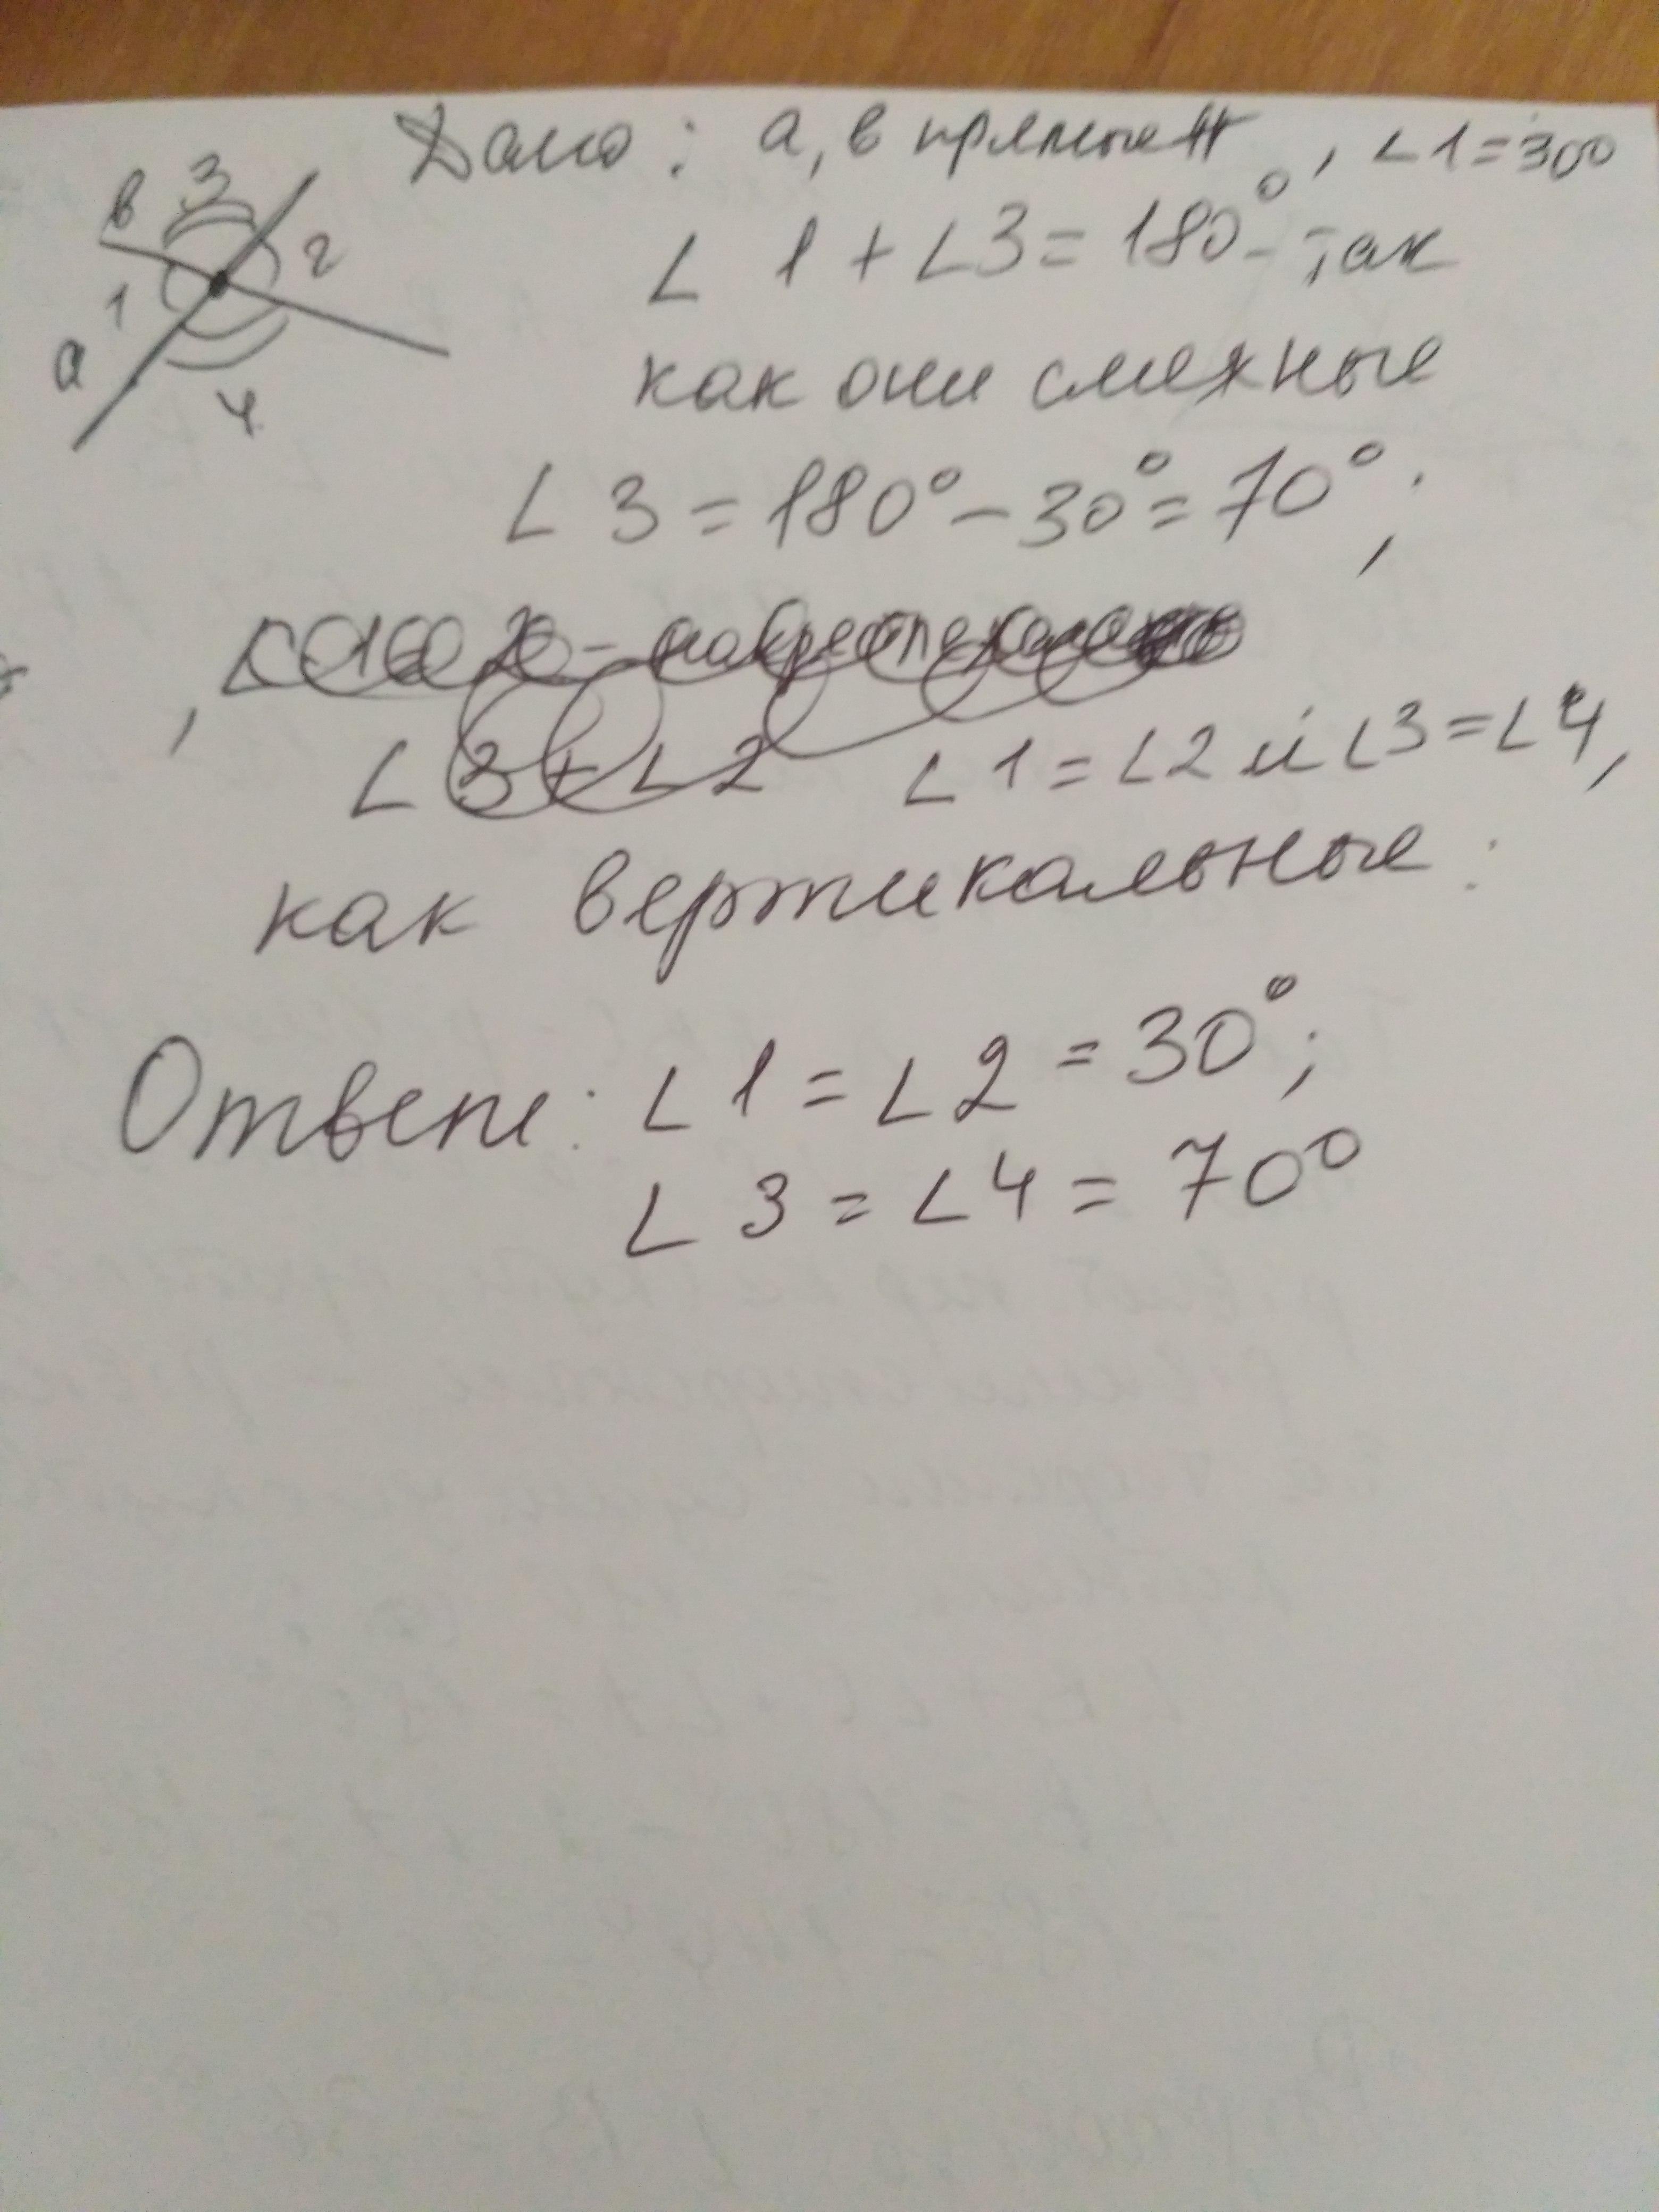 Дано: а, в прямые , ∠1=30°
в 3 2 1 а 4
∠ 1 + ∠3 = 180° - так
как они смежные
∠ 3 = 180° - 30° = 70°;
∠ 3 + ∠ 2 ∠ 1 = ∠2 и ∠3 = ∠4,
как вертикальные:
Ответ: ∠ 1 = ∠ 2 = 30°;
∠ 3 = ∠ 4 = 70°